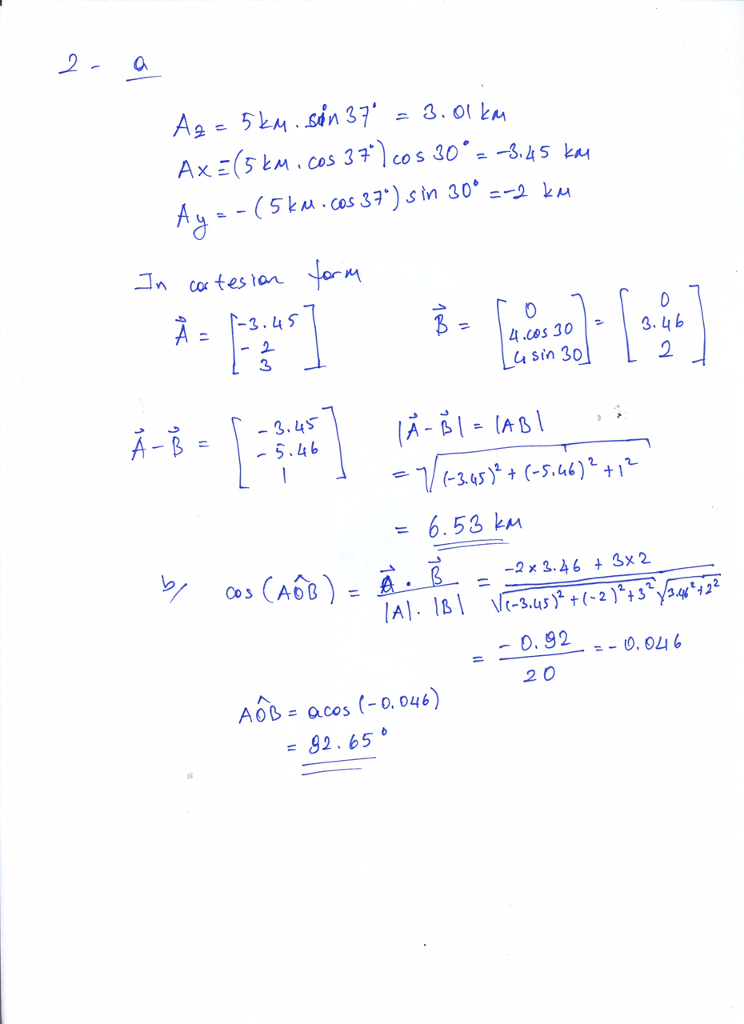 2 - a
Az = 5 km . sin 37° = 3.01 km
Ax = -(5 km . cos 37°) cos 30° = -3.45 km
Ay = - (5 km . cos 37°) sin 30° = -2 km
In cartesian form
A⃗ = [-3.45 -2 3] B⃗ = [0 4.cos 30 4 sin 30] = [0 3.46 2]
A⃗ - B⃗ = [-3.45 -5.46 1] |A⃗ - B⃗| = |AB|
= √((-3.45)² + (-5.46)² + 1²)
= 6.53 km
b/ cos (AÔB) = A⃗ . B⃗ / |A|. |B| = -2 x 3.46 + 3x2 / √((-3.45)² + (-2)² + 3²) √(3.46² + 2²)
= -0.92 / 20 = -0.046
AÔB = acos (-0.046)
= 92.65°